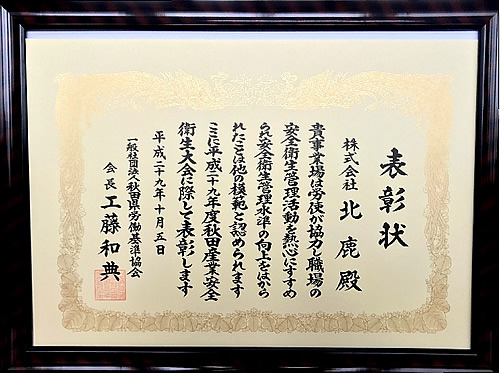 表彰状
株式会社 北鹿殿
貴事業場は労使が協力し職場の
安全衛生管理活動を熱心にすすめ
られ安全衛生管理水準の向上をはから
れたことは他の模範と認められます
ここに平成二十九年度秋田産業安全
衛生大会に際して表彰します
平成二十九年十月五日
一般社団法人秋田県労働基準協会
会長 工藤和典